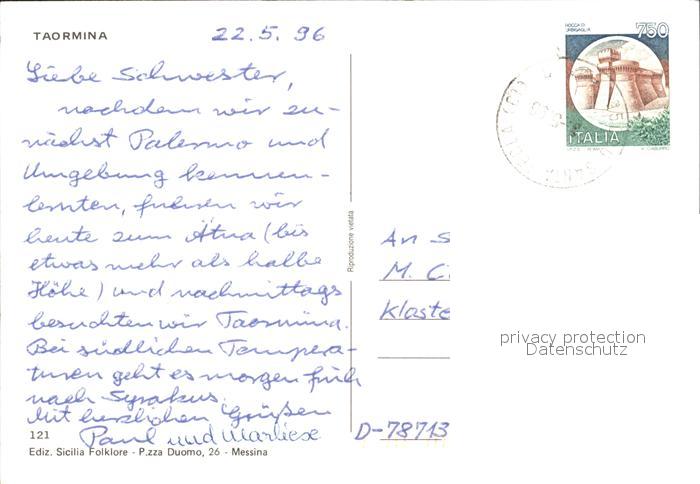 TAORMINA
22.5.96
Liebe Schwester,
nachdem wir zu-
nächst Palermo und
Umgebung kennen-
lernten, fuhren wir
heute zum Ätna (bis
etwas mehr als halbe
Höhe) und nachmittags
besuchten wir Taormina.
Bei südlichen Tempera-
turen geht es morgen früh
nach Syrakus.
Mit herzlichen Grüßen
Paul und Marliese
121
Ediz. Sicilia Folklore - P.zza Duomo, 26 - Messina
Riproduzione vietata
ROCCA DI
URBISAGLIA
750
ITALIA
An S
M. C
Kloste
D-78713
privacy protection
Datenschutz